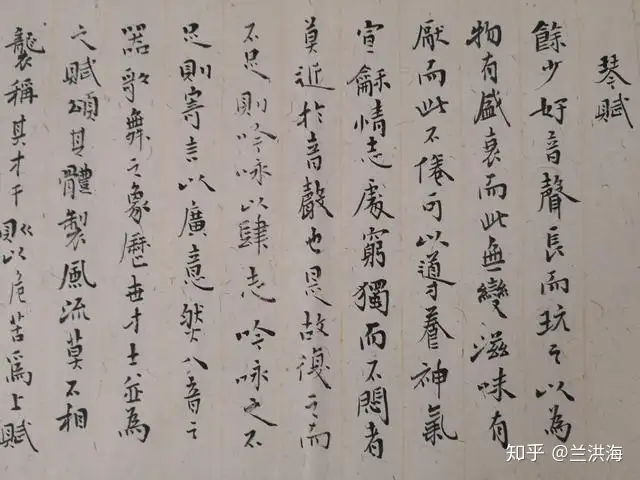 琴賦
餘少好音聲長而玩之以為
物有盛衰而此無變滋味有
厭而此不倦可以導養神氣
宣龢情志處窮獨而不悶者
莫近於音聲也是故復之而
不足則吟咏以肆志吟咏之不
足則寄言以廣意然八音之
器歌舞之象歷世才士並為
之賦頌其體製風流莫不相
襲稱其才干則以危苦為上賦
知乎 @兰洪海